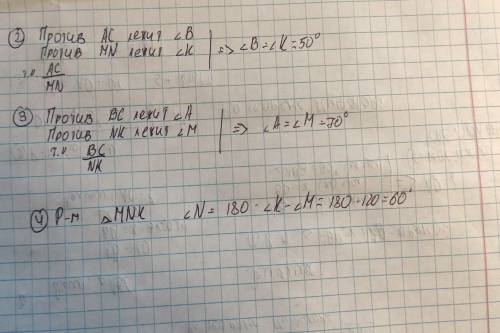 ② Против AC лежит ∠B
Против MN лежит ∠K => ∠B = ∠K = 50°
т.к AC/MN
③ Против BC лежит ∠A
Против NK лежит ∠M => ∠A = ∠M = 70°
т.к BC/NK
④ Р-м △MNK ∠N = 180 - ∠K - ∠M = 180 - 120 = 60°